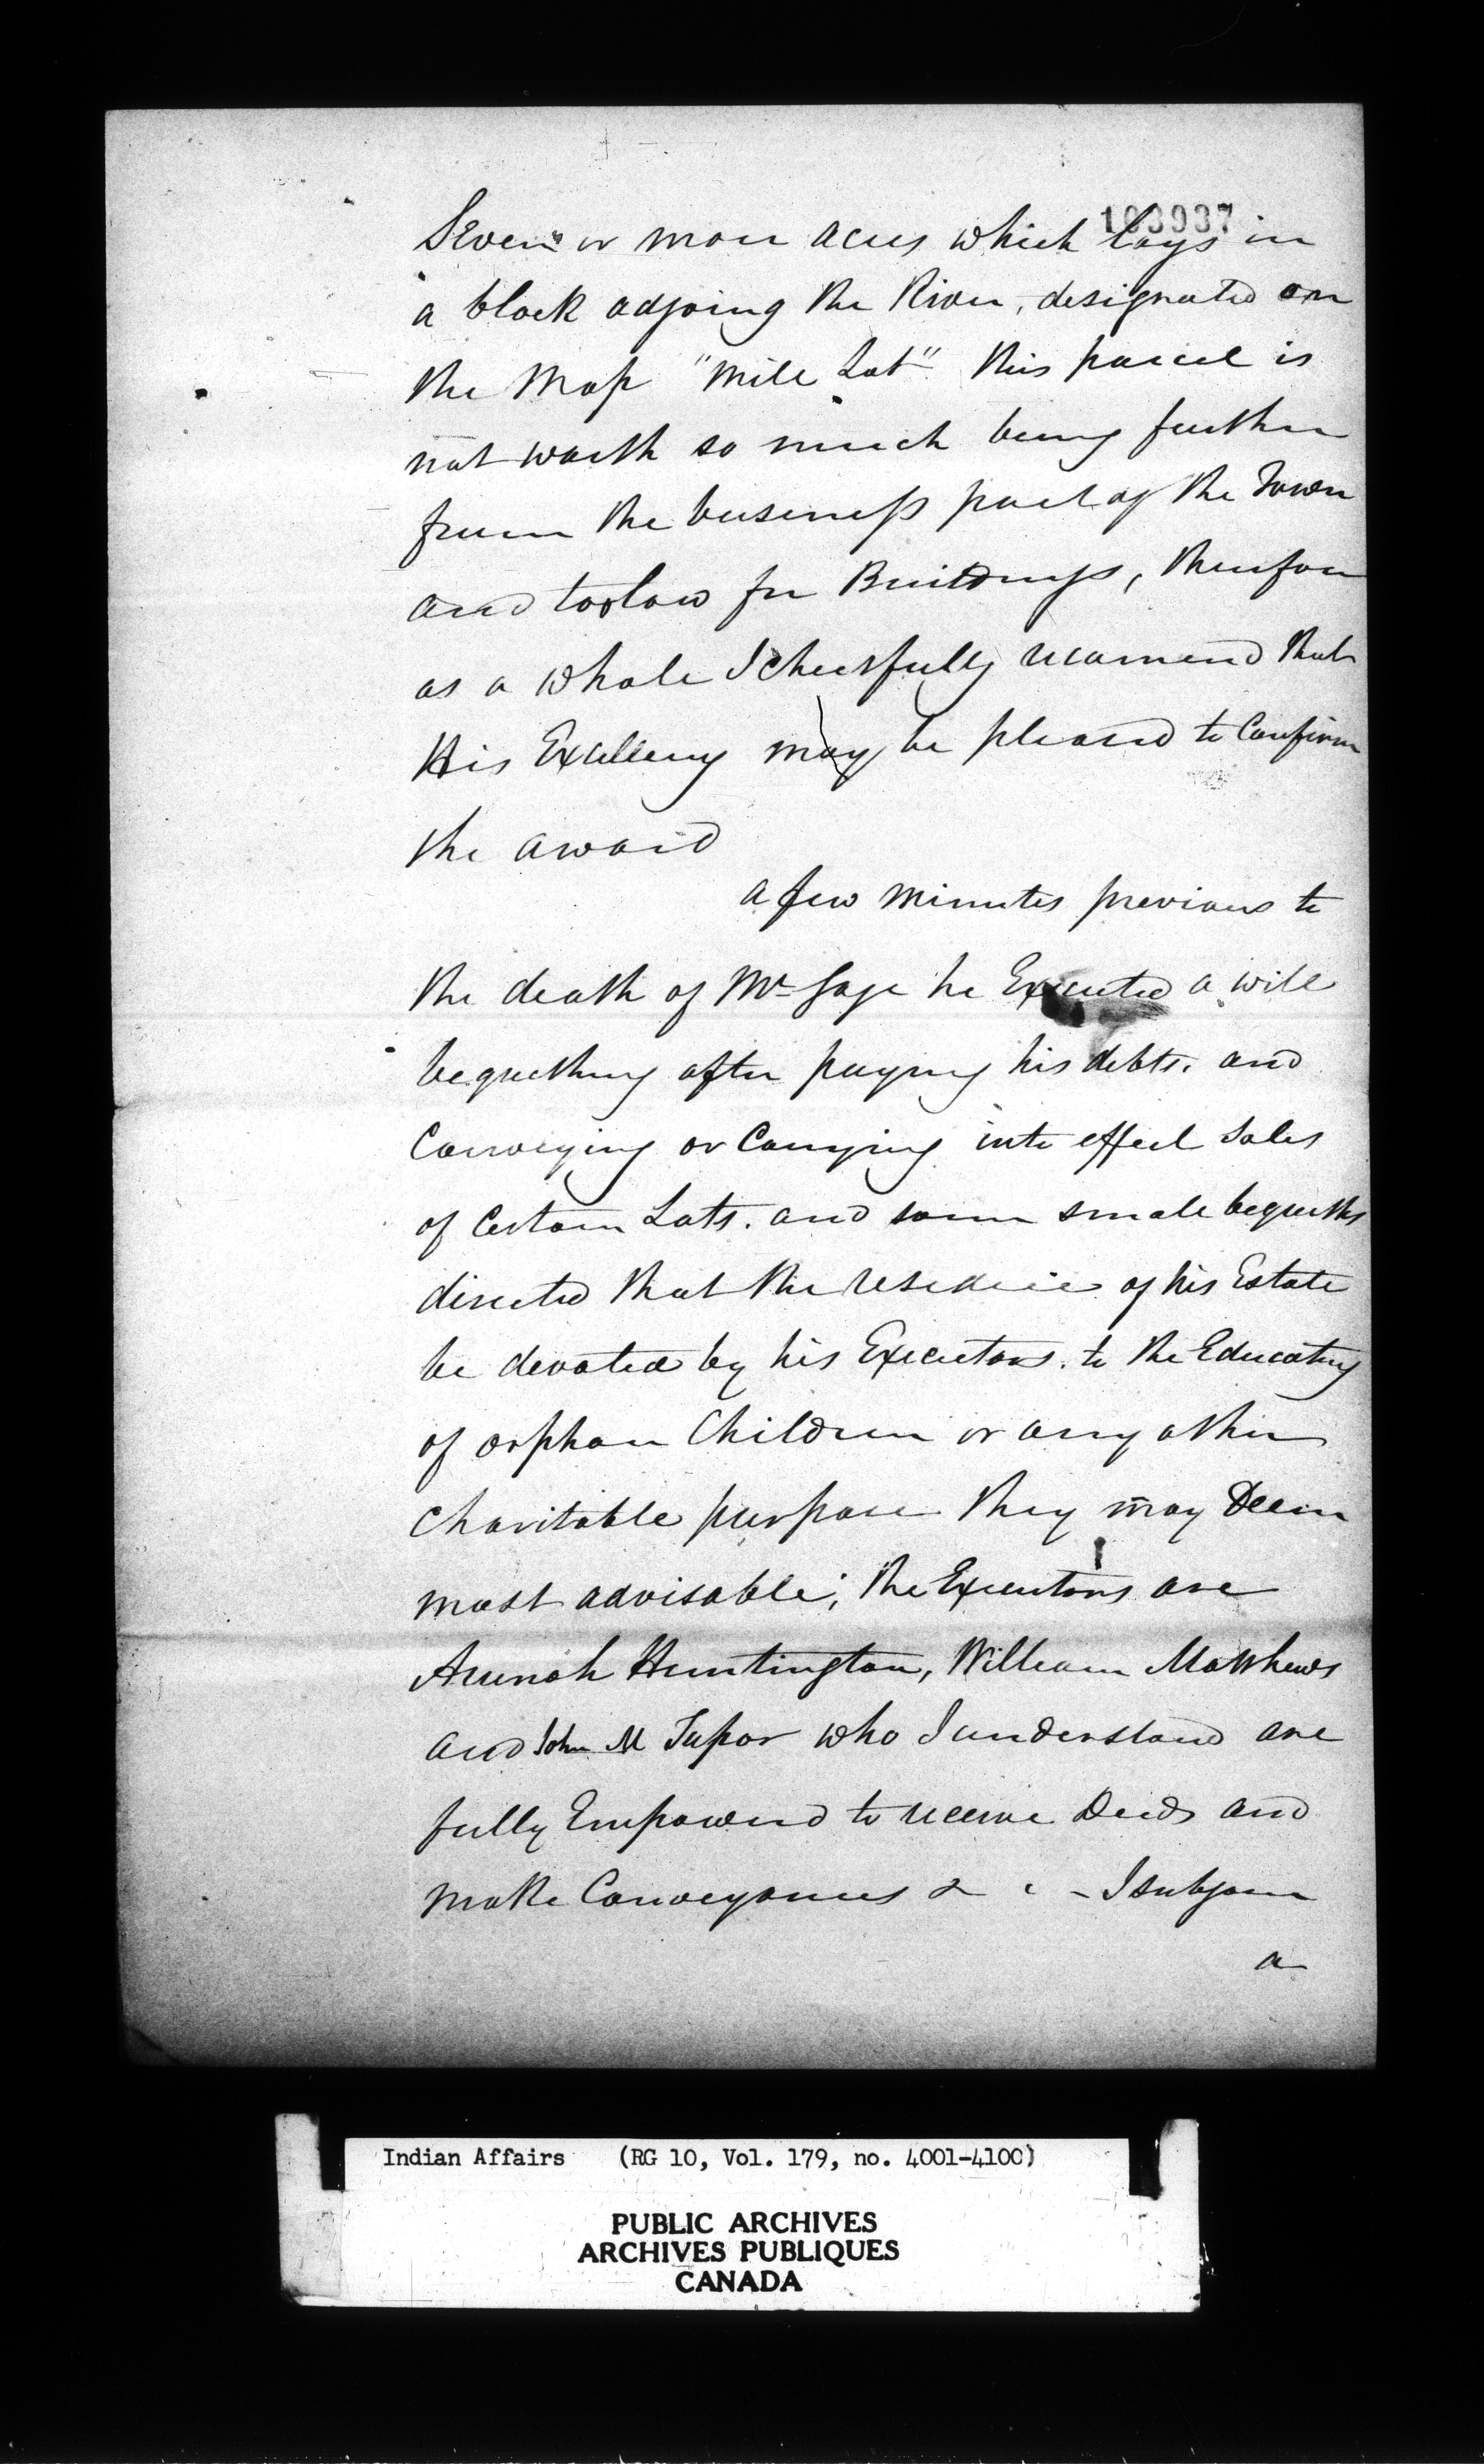 103937
Seven or more acres which lays in
a block adjoing the River, designated on
the Map "Mill Lot" this parcel is
not worth so much being further
from the business part of the Town
and too low for Buildings, therefore
as a whole I cheerfully recomend that
His Excellency may be pleased to Confirm
the award
a few minutes previous to
the death of Mr Gage he Executed a will
bequething after paying his debts. and
Conveying or Carrying into effect Sales
of Certain Lots. and some small bequeths
directed that the residue of his Estate
be devoted by his Executors. to the Educating
of orphan Children or any other
Charitable purpose they may Deem
most advisable; the Executors are
Arunah Huntington, William Matthews
and John M Tupor who I understand are
fully Empowered to receive Deeds and
make Conveyances & c - I subjoin
a
Indian Affairs (RG 10, Vol. 179, no. 4001-4100)
PUBLIC ARCHIVES
ARCHIVES PUBLIQUES
CANADA